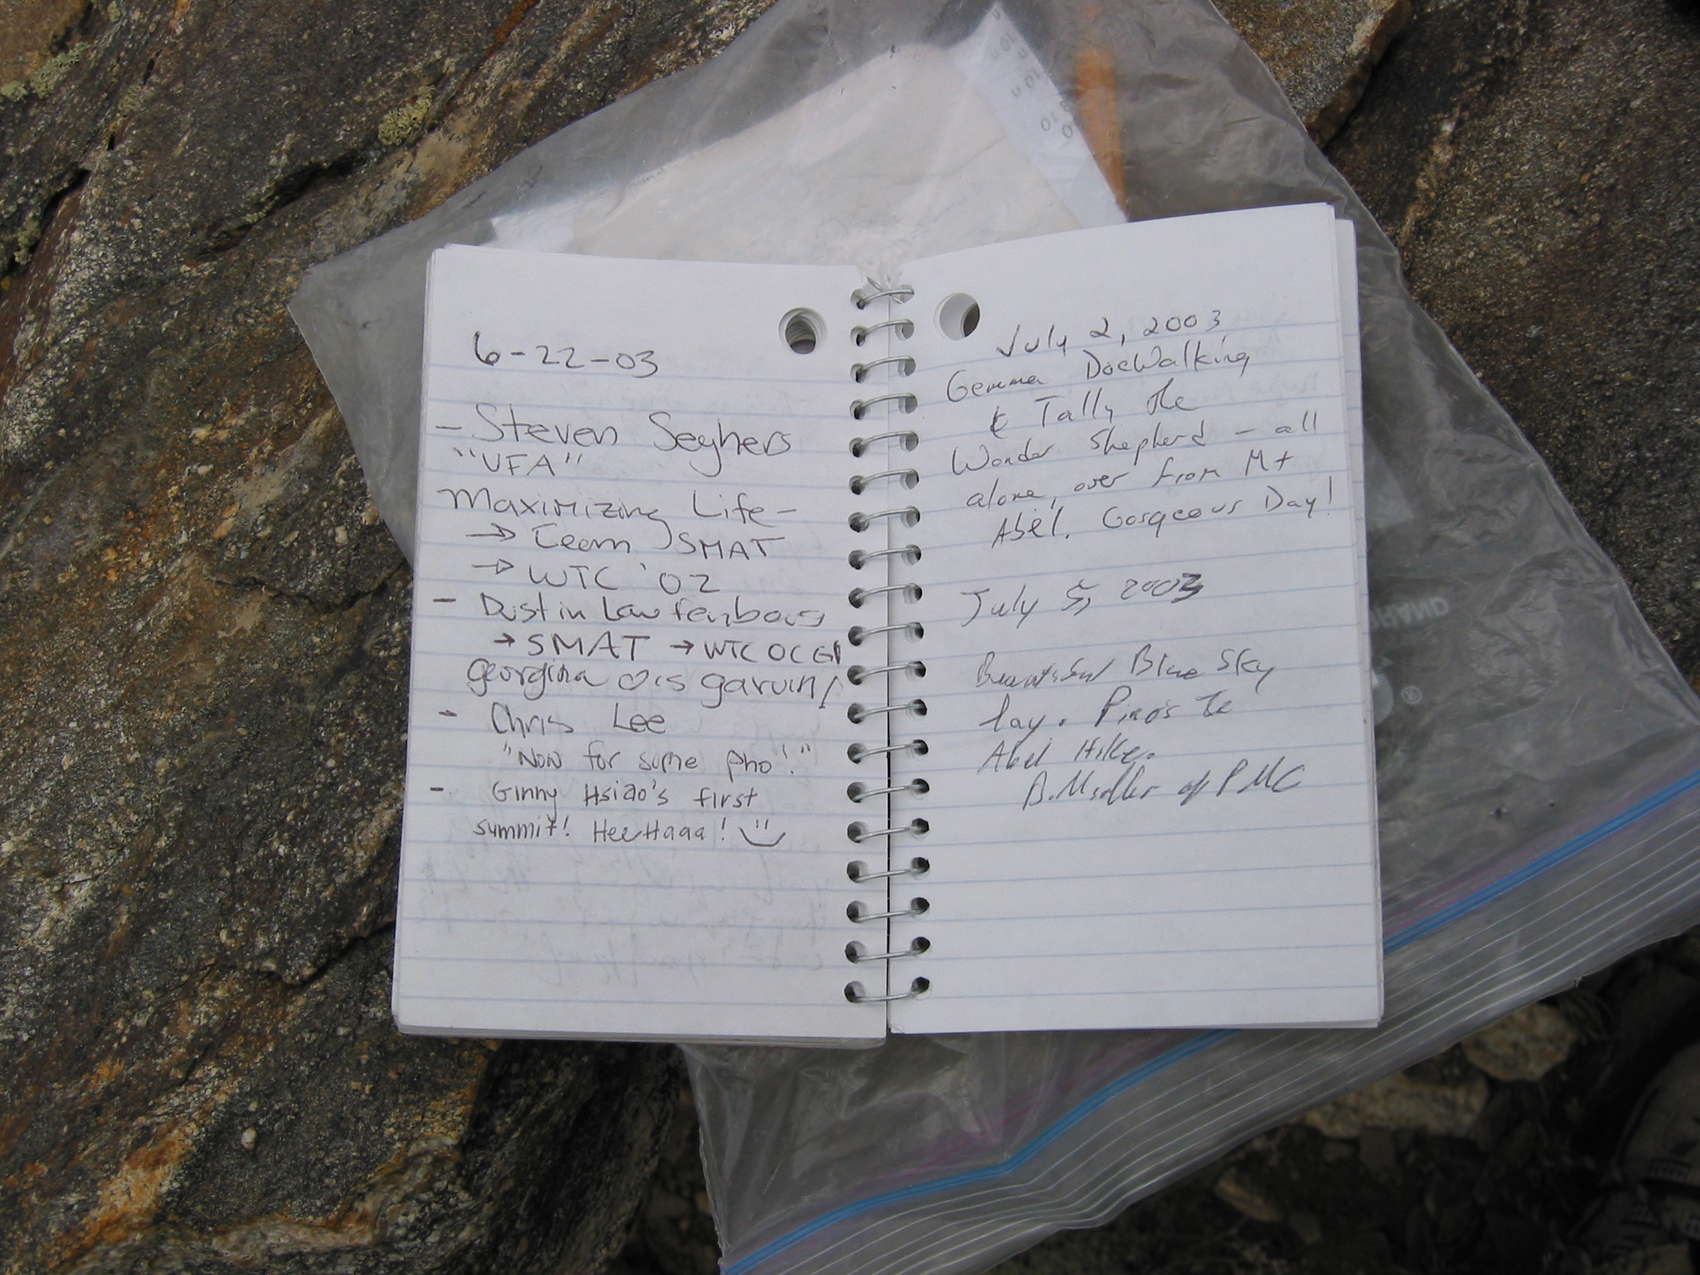 6-22-03
- Steven Seghers
"VFA"
Maximizing Life -
→ Team SMAT
→ WTC '02
- Dustin
→ SMAT → WTC OC G1
georgina garvin
- Chris Lee
"Now for some pho!"
- Ginny Hsiao's first
summit! HeeHaaa!
July 2, 2003
Gemma DoeWalking
& Tally the
Wonder Shepherd - all
alone, over from Mt
Abel. Gorgeous Day!
July 5, 2003
Beautiful Blue Sky
day. Pinos to
Abel Hike.
of PMC